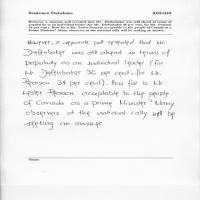 Sentence Database
A02-043
However, a separate poll revealed that Mr. Diefenbaker was still ahead in terms of popularity as an individual leader (for Mr. Diefenbaker 36 per cent, for Mr. Pearson 34 per cent). How far is Mr. Lester Pearson acceptable to the people of Canada as a Prime Minister? Many observers at the national rally will be seeking an answer.
However, a separate poll revealed that Mr.
Diefenbaker was still ahead in terms of
popularity as an individual leader (for
Mr. Diefenbaker 36 per cent, for Mr.
Pearson 34 per cent). How far is Mr.
Lester Pearson acceptable to the people
of Canada as a Prime Minister? Many
observers at the national rally will be
seeking an answer.
Name: